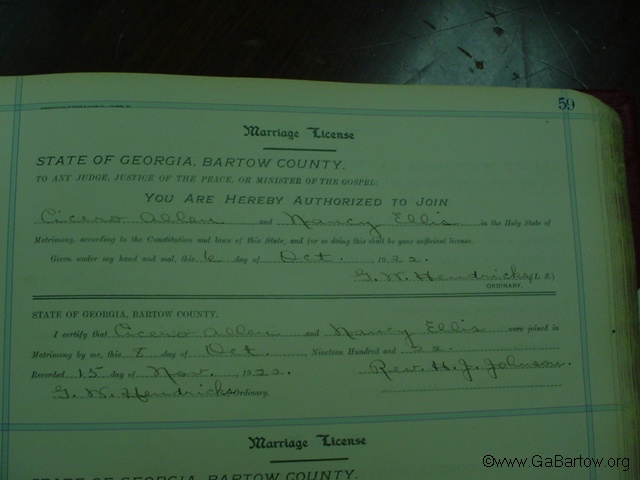 59
Marriage License
STATE OF GEORGIA, BARTOW COUNTY.
TO ANY JUDGE, JUSTICE OF THE PEACE, OR MINISTER OF THE GOSPEL:
YOU ARE HEREBY AUTHORIZED TO JOIN
Cicero Allen and Nancy Ellis in the Holy State of
Matrimony, according to the Constitution and laws of this State, and for so doing this shall be your sufficient license.
Given under my hand and seal, this 6 day of Oct. 1922.
G. W. Hendricks (L. S.)
ORDINARY.
STATE OF GEORGIA, BARTOW COUNTY.
I certify that Cicero Allen and Nancy Ellis were joined in
Matrimony by me, this day of Oct. , Nineteen Hundred and 22.
Recorded 15 day of Nov. , 1922. Rev. H. J. Johnson.
G. W. Hendricks Ordinary.
Marriage License
STATE OF GEORGIA, BARTOW COUNTY.
©www.GaBartow.org